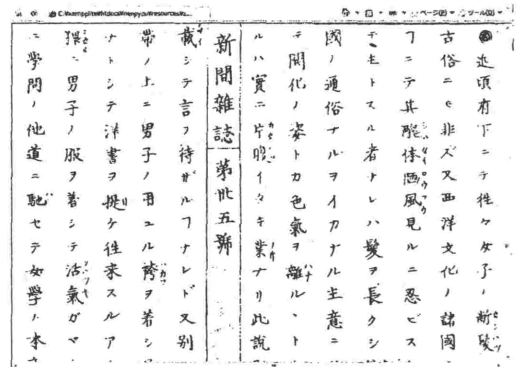 ページ(P) ツール(O)
近頃府下ニテ往々女子ノ斷髮
古俗ニモ非ズ又西洋文化ノ諸國
ヿニテ其醜体陋風見ルニ忍ビス
ヲ主トスル者ナレハ髮ヲ長クシ
國ノ通俗ナルヲイカナル主意ニ
テ開化ノ姿トカ色氣ヲ離ルヽト
ルハ實ニ片腹イタキ業ナリ此說
新聞雜誌 第卅五號
載シテ言フ待ザルヿナレド又別
帶ノ上ニ男子ノ用ユル袴ヲ着シ
ナトシテ洋書ヲ提ケ往來スルア
猥ニ男子ノ服ヲ着シテ活氣ガマ
ニ學問ノ他道ニ馳セテ女學ノ本